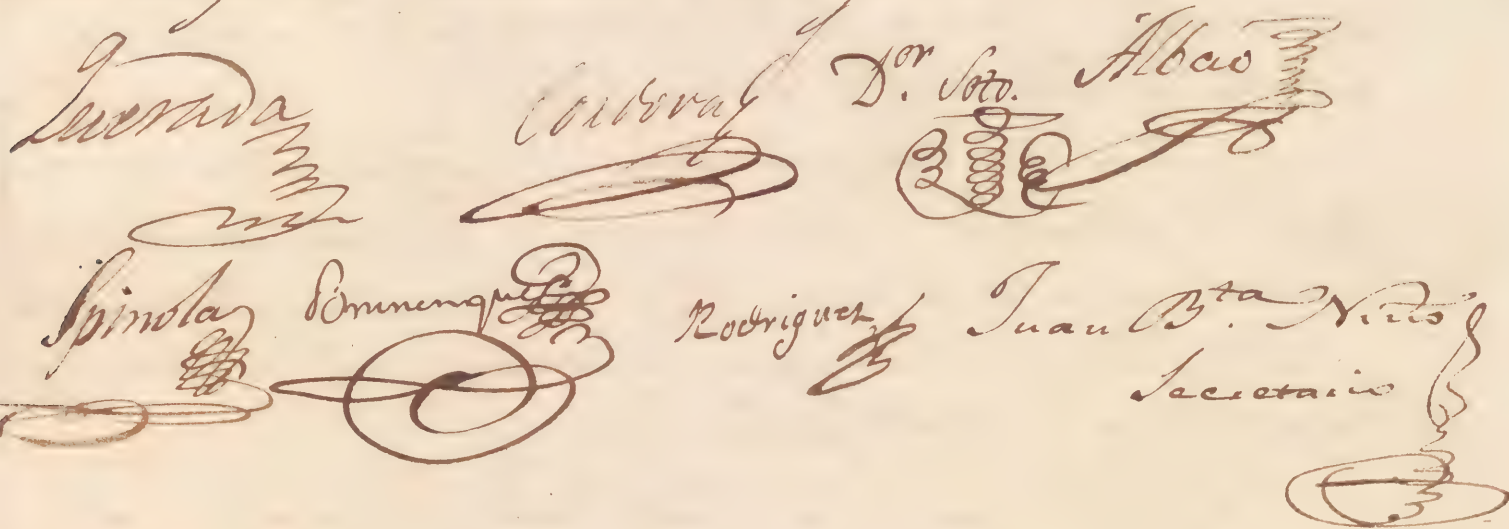 Quesada Cordova Dor. Soto. Albao
Spinola Dominenques Rodriguez Juan Bta. Niño
Secretario